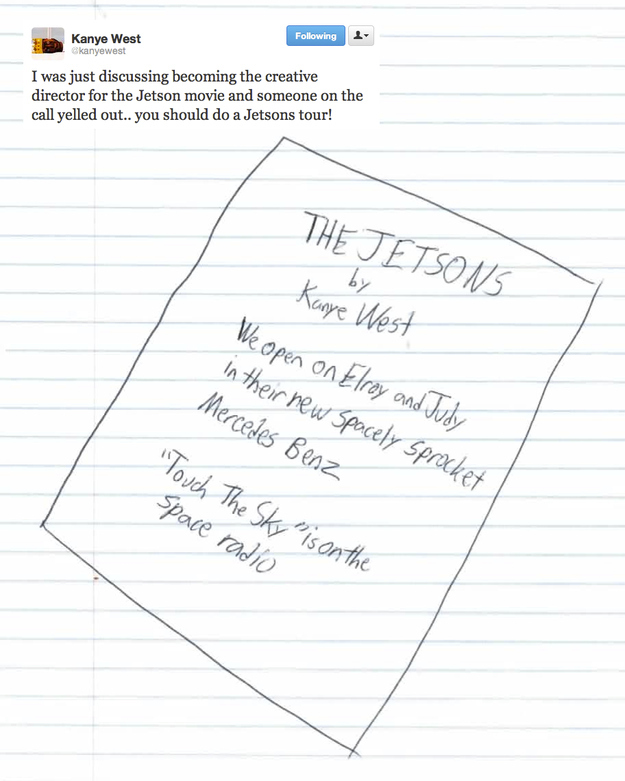 Kanye West
@kanyewest
Following
I was just discussing becoming the creative
director for the Jetson movie and someone on the
call yelled out.. you should do a Jetsons tour!
THE JETSONS
by
Kanye West
We open on Elroy and Judy
in their new Spacely Sprocket
Mercedes Benz
"Touch The Sky" is on the
space radio